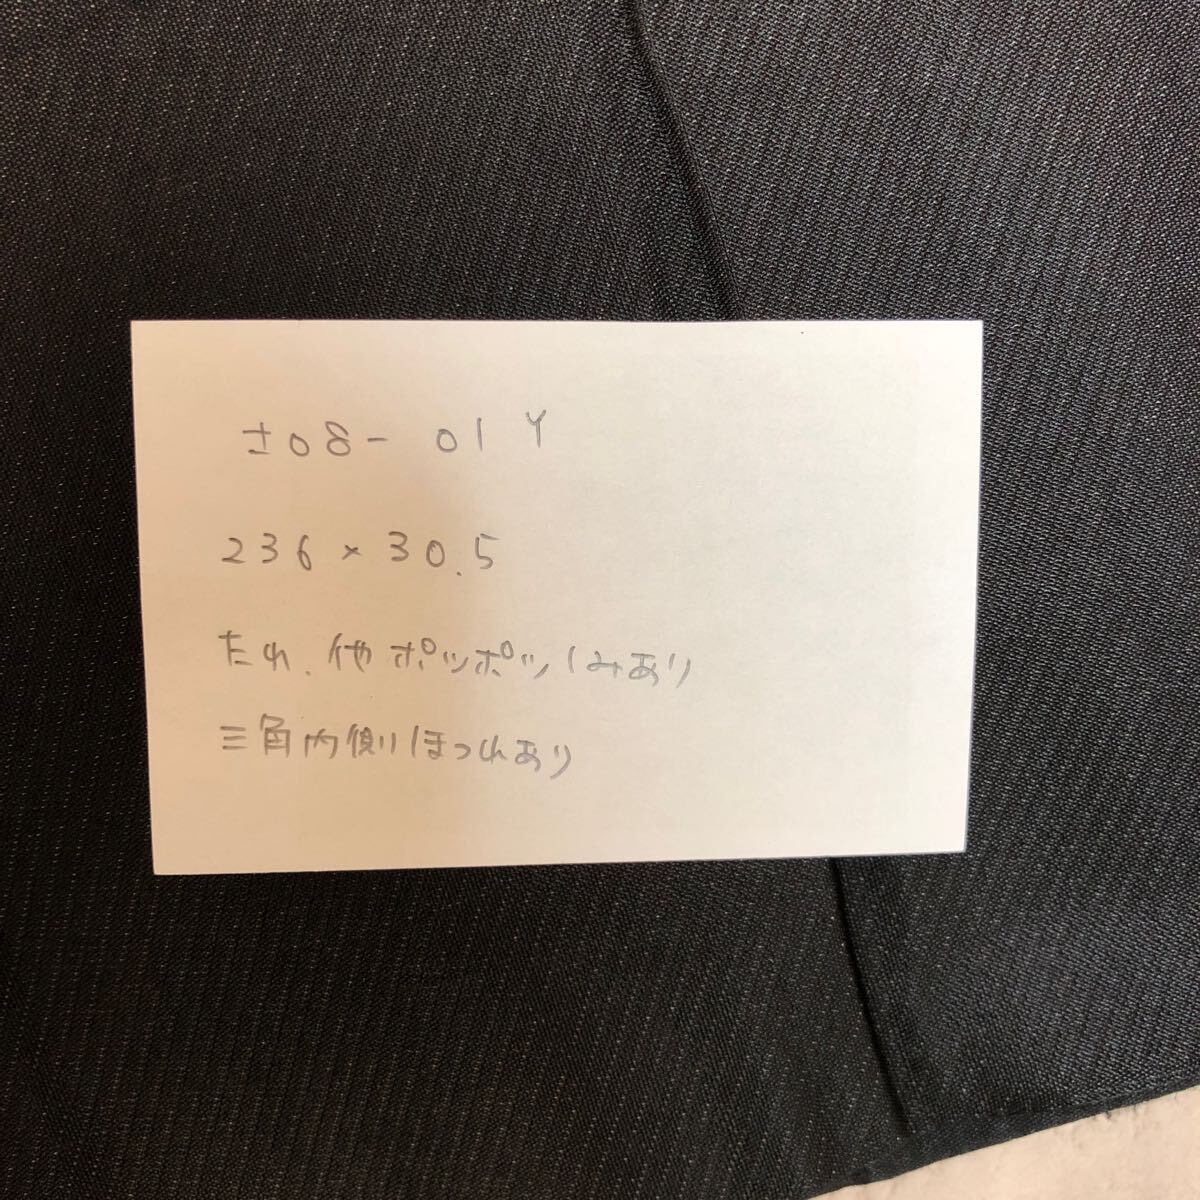 ±08- 01 Y
236×30.5
たれ、他ポツポツしみあり
三角内側ほつれあり